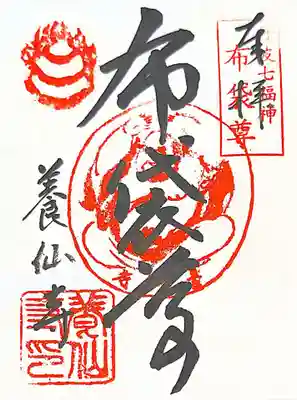 奉拝
七福神
布袋尊
布袋尊
養仙寺
養仙
寺印